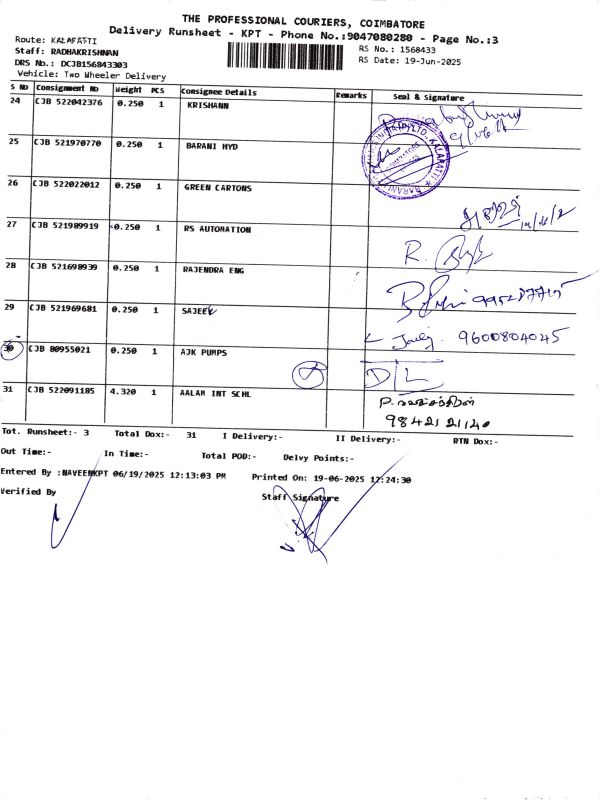 THE PROFESSIONAL COURIERS, COIMBATORE
Delivery Runsheet - KPT - Phone No.:9047080280 - Page No.:3
Route: KALAPATTI
Staff: RADHAKRISHNAN
DRS No.: DCJB156843303
Vehicle: Two Wheeler Delivery
RS No.: 1568433
RS Date: 19-Jun-2025
S No Consignment No Weight PCS Consignee Details Remarks Seal & Signature
24 CJB 522042376 0.250 1 KRISHANN
25 CJB 521970770 0.250 1 BARANI HYD
26 CJB 522022012 0.250 1 GREEN CARTONS
27 CJB 521989919 0.250 1 RS AUTOMATION
R.
28 CJB 521698939 0.250 1 RAJENDRA ENG
29 CJB 521969681 0.250 1 SAJEEV
9600804045
30 CJB 80955021 0.250 1 AJK PUMPS
D/L
31 CJB 522091185 4.320 1 AALAM INT SCHL
98421 21140
Tot. Runsheet:- 3 Total Dox:- 31 I Delivery:- II Delivery:- RTN Dox:-
Out Time:- In Time:- Total POD:- Delvy Points:-
Entered By :NAVEENKPT 06/19/2025 12:13:03 PM Printed On: 19-06-2025 12:24:30
Verified By Staff Signature